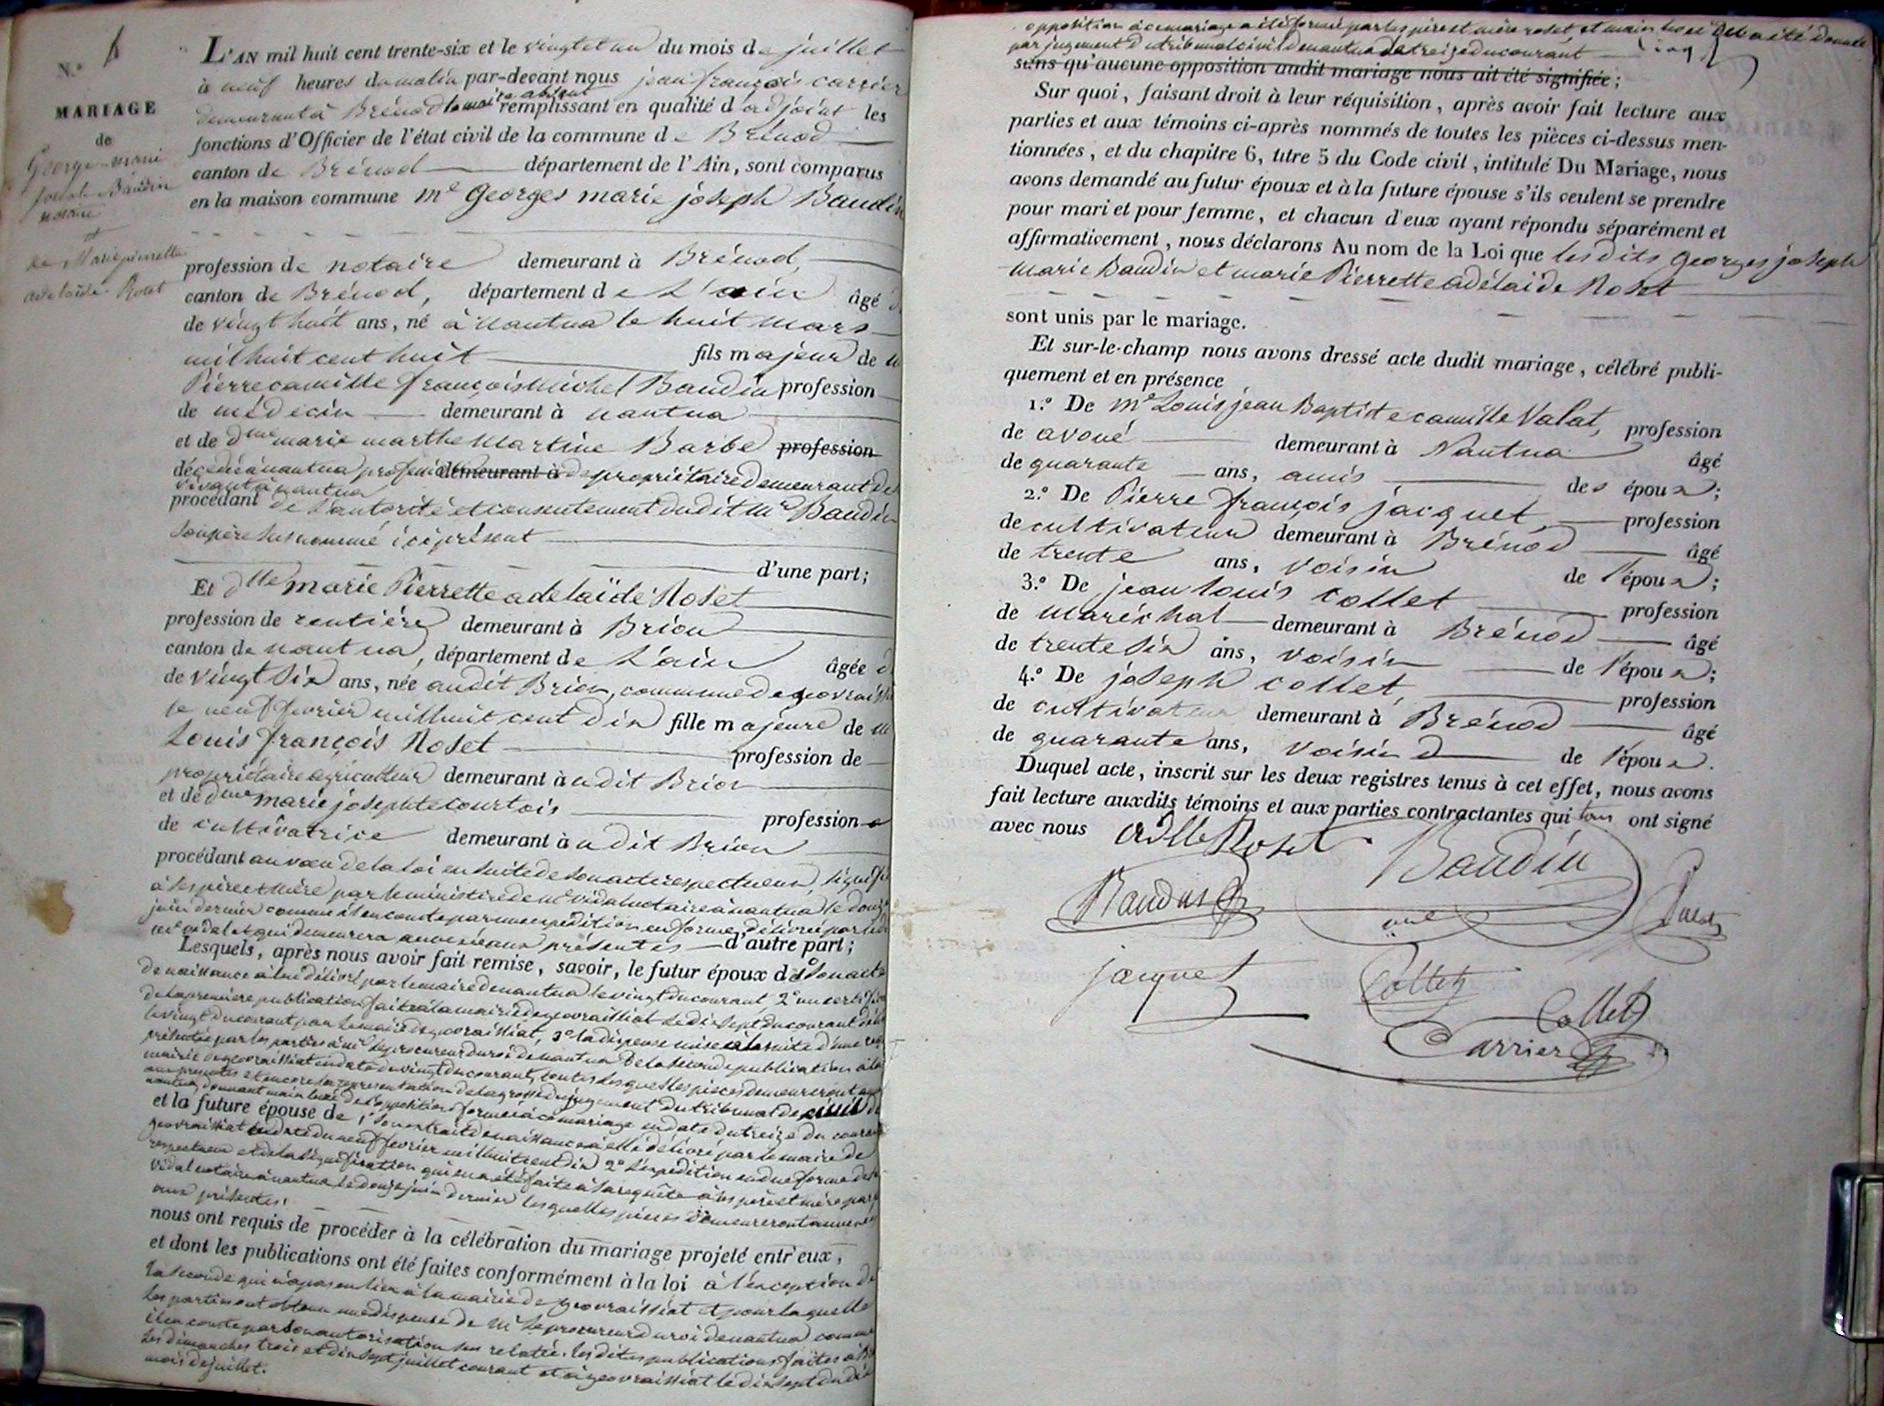 N.º
MARIAGE
de
George-marie
Joseph Baudin
notaire
et
de Marie pierrette
adelaïde Roset
L'AN mil huit cent trente-six et le vingt et un du mois de juillet
à neuf heures du matin par-devant nous jean françois carrier
demeurant à Brénod le maire absent remplissant en qualité d'adjoint les
fonctions d'Officier de l'état civil de la commune de Brénod
canton de Brénod département de l'Ain, sont comparus
en la maison commune me Georges marie joseph Baudin
profession de notaire demeurant à Brénod,
canton de Brénod, département de L'ain âgé
de vingt huit ans, né à nantua le huit mars
mil huit cent huit fils majeur de
Pierre camille françois michel Baudin profession
de médecin demeurant à nantua
et de dme marie marthe Martine Barbe profession
décédée à nantua demeurant à de propriétaire demeurant de
vivant à nantua
procédant de l'autorité et consentement dudit mr Baudin
son père susnommé ici présent
d'une part;
Et dlle marie Pierrette adelaïde Roset
profession de rentière demeurant à Brion
canton de nantua, département de L'ain âgée
de vingt six ans, née audit Brion, commune de geovraissiat
le neuf fevrier mil huit cent dix fille majeure de
Louis françois Roset profession de
propriétaire agriculteur demeurant audit Brion
et de dme marie josephte courtois profession
de cultivatrice demeurant audit Brion
procédant au vœu de la loi ensuite de son acte respectueux, signifié
à ses père et mère par le ministère de me vidal notaire à nantua le douze
juin dernier comme il en conste par une expédition en forme délivrée par ledit
me vidal et qui demeurera annexée aux présentes d'autre part;
Lesquels, après nous avoir fait remise, savoir, le futur époux de 1º son acte
de naissance à lui délivré par le maire de nantua le vingt du courant, 2º un certificat
de la première publication faite à la mairie de geovraissiat le dix sept du courant
le vingt du courant par le maire de geovraissiat, 3º la dispense mise à la suite d'une
présentée par les parties à mr le procureur du roi de nantua de la seconde publication à la
mairie de geovraissiat en date du vingt du courant, toutes lesquelles pièces demeureront
aux présentes et encore la représentation de la grosse du jugement du tribunal de civil de
nantua donnant main levée de l'opposition formée à ce mariage en date du treize du courant
et la future épouse de 1º son extrait de naissance à elle délivré par le maire de
geovraissiat en date du neuf fevrier mil huit cent dix 2º l'expédition en due forme de
respectueux et de la signification qui en a été faite à sa requête à ses père et mère par
vidal notaire à nantua le douze juin dernier lesquelles pièces demeureront annexées
aux présentes.
nous ont requis de procéder à la célébration du mariage projeté entr'eux,
et dont les publications ont été faites conformément à la loi à l'exception de
la seconde qui n'a pas eu lieu à la mairie de geovraissiat et pour laquelle
les parties ont obtenu une dispense de mr le procureur du roi de nantua comme
il en conste par son autorisation sus relatée. les dites publications faites à
les dimanches trois et dix sept juillet courant et à geovraissiat le dix sept du dit
mois de juillet.
opposition à ce mariage a été formée par les père et mère roset et main levée a été donnée
par jugement du tribunal civil de nantua du treize du courant
sans qu'aucune opposition audit mariage nous ait été signifiée;
Sur quoi, faisant droit à leur réquisition, après avoir fait lecture aux
parties et aux témoins ci-après nommés de toutes les pièces ci-dessus men-
tionnées, et du chapitre 6, titre 5 du Code civil, intitulé Du Mariage, nous
avons demandé au futur époux et à la future épouse s'ils veulent se prendre
pour mari et pour femme, et chacun d'eux ayant répondu séparément et
affirmativement, nous déclarons Au nom de la Loi que les dits Georges joseph
Marie Baudin et marie Pierrette adélaide Roset
sont unis par le mariage.
Et sur-le-champ nous avons dressé acte dudit mariage, célébré publi-
quement et en présence
1.º De me Louis jean Baptiste camille Valat, profession
de avoué demeurant à Nantua âgé
de quarante ans, amis des époux;
2.º De Pierre françois jacquet, profession
de cultivateur demeurant à Brénod âgé
de trente ans, voisin de l'époux;
3.º De jean louis collet profession
de maréchal demeurant à Brénod âgé
de trente six ans, voisin de l'époux;
4.º De joseph collet, profession
de cultivateur demeurant à Brénod âgé
de quarante ans, voisin de l'époux.
Duquel acte, inscrit sur les deux registres tenus à cet effet, nous avons
fait lecture auxdits témoins et aux parties contractantes qui tous ont signé
avec nous Roset Baudin
Baudin
jacquet Collet
Collet
Carrier